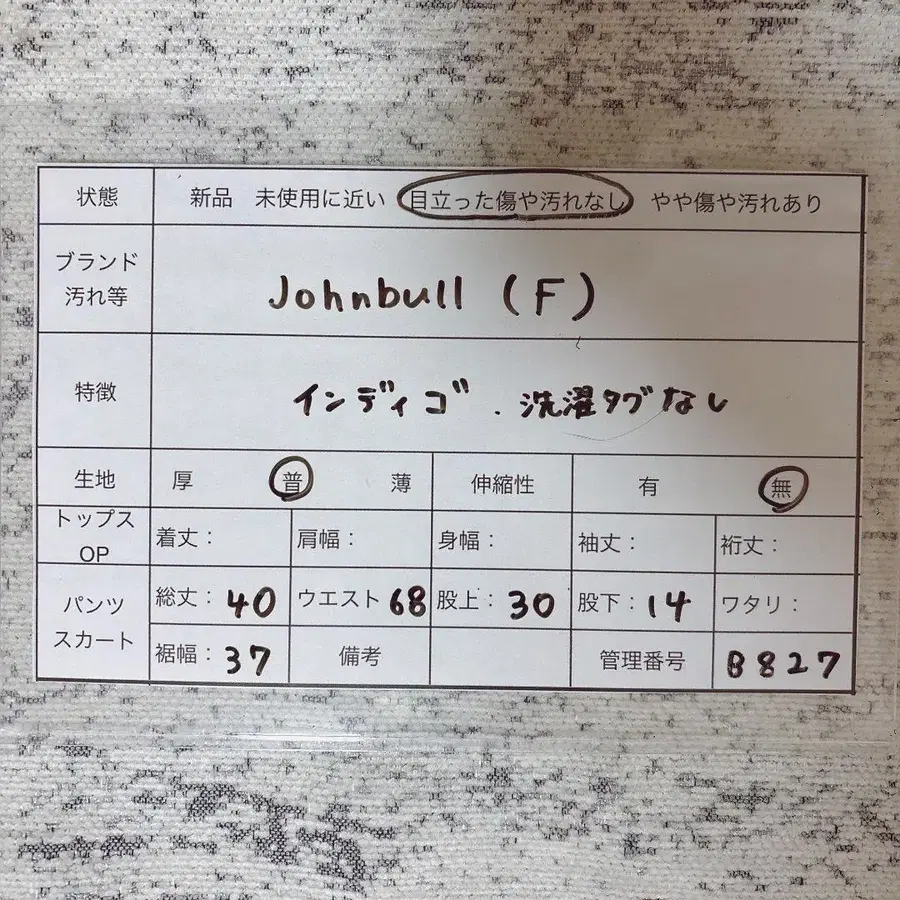 状態 新品 未使用に近い 目立った傷や汚れなし やや傷や汚れあり
ブランド
汚れ等
Johnbull (F)
特徴 インディゴ、洗濯タグなし
生地 厚 普 薄 伸縮性 有 無
トップス
OP
着丈: 肩幅: 身幅: 袖丈: 裄丈:
パンツ
スカート
総丈: 40 ウエスト 68 股上: 30 股下: 14 ワタリ:
裾幅: 37 備考 管理番号 B827